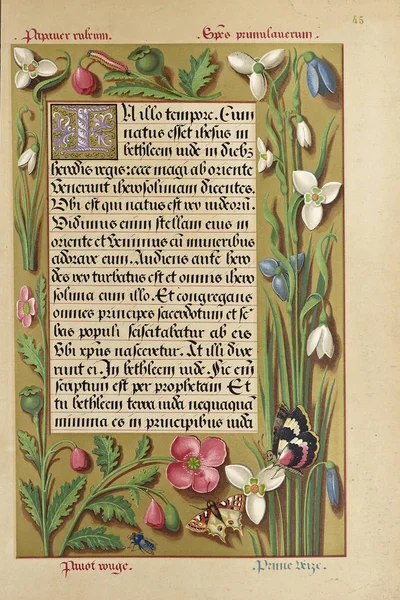 45
Papauer rubrum. Spēs primulauerum.
IN illo tempore. Cum
natus esset ihesus in
bethleem iude in dieb3
herodis regis: ecce magi ab oriente
venerunt iherosolimam dicentes.
Vbi est qui natus est rex iudeorū.
Vidimus enim stellam eius in
oriente et venimus cū muneribus
adorare eum. Audiens ante hero
des rex turbatus est et omnis ihero
solima cum illo. Et congregans
omnes principes sacerdotum et sc̄
bas populi sciscitabatur ab eis
Vbi xp̄us nasceretur. At illi dixe
runt ei. In bethleem iude. Sic eni
scriptum est per prophetam Et
tu bethleem terra iuda nequaquā
minima es in principibus iuda
Pauot rouge.